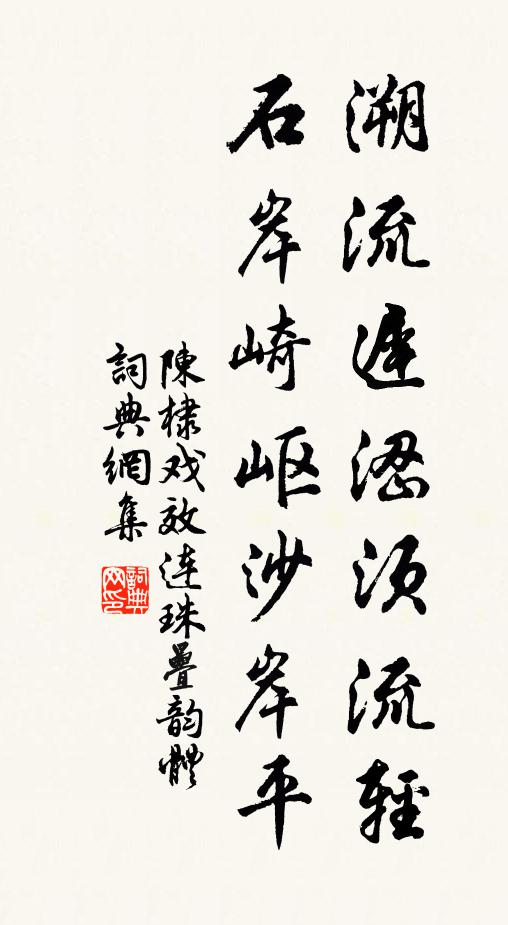 溯流遲澀須流輕
石岸崎岖沙岸平
陳棣戏效连珠疊韵體
詞典網集
詞典網印